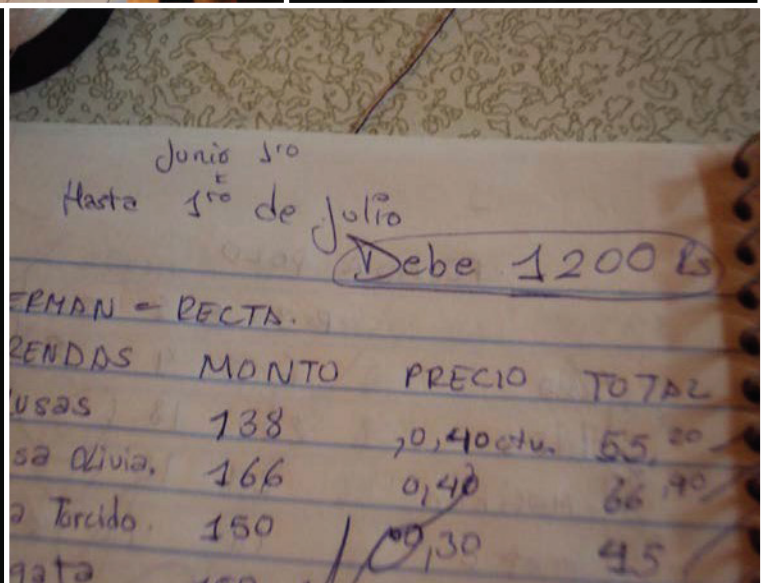 Junio 1ro
Hasta 1ro de Julio
Debe 1200 Bs
ERMAN = RECTA.
RENDAS MONTO PRECIO TOTAL
usas 138 ,0,40 ctv. 55,20
sa Olivia. 166 0,40 66,40
a Torcido. 150 0,30 45
gata